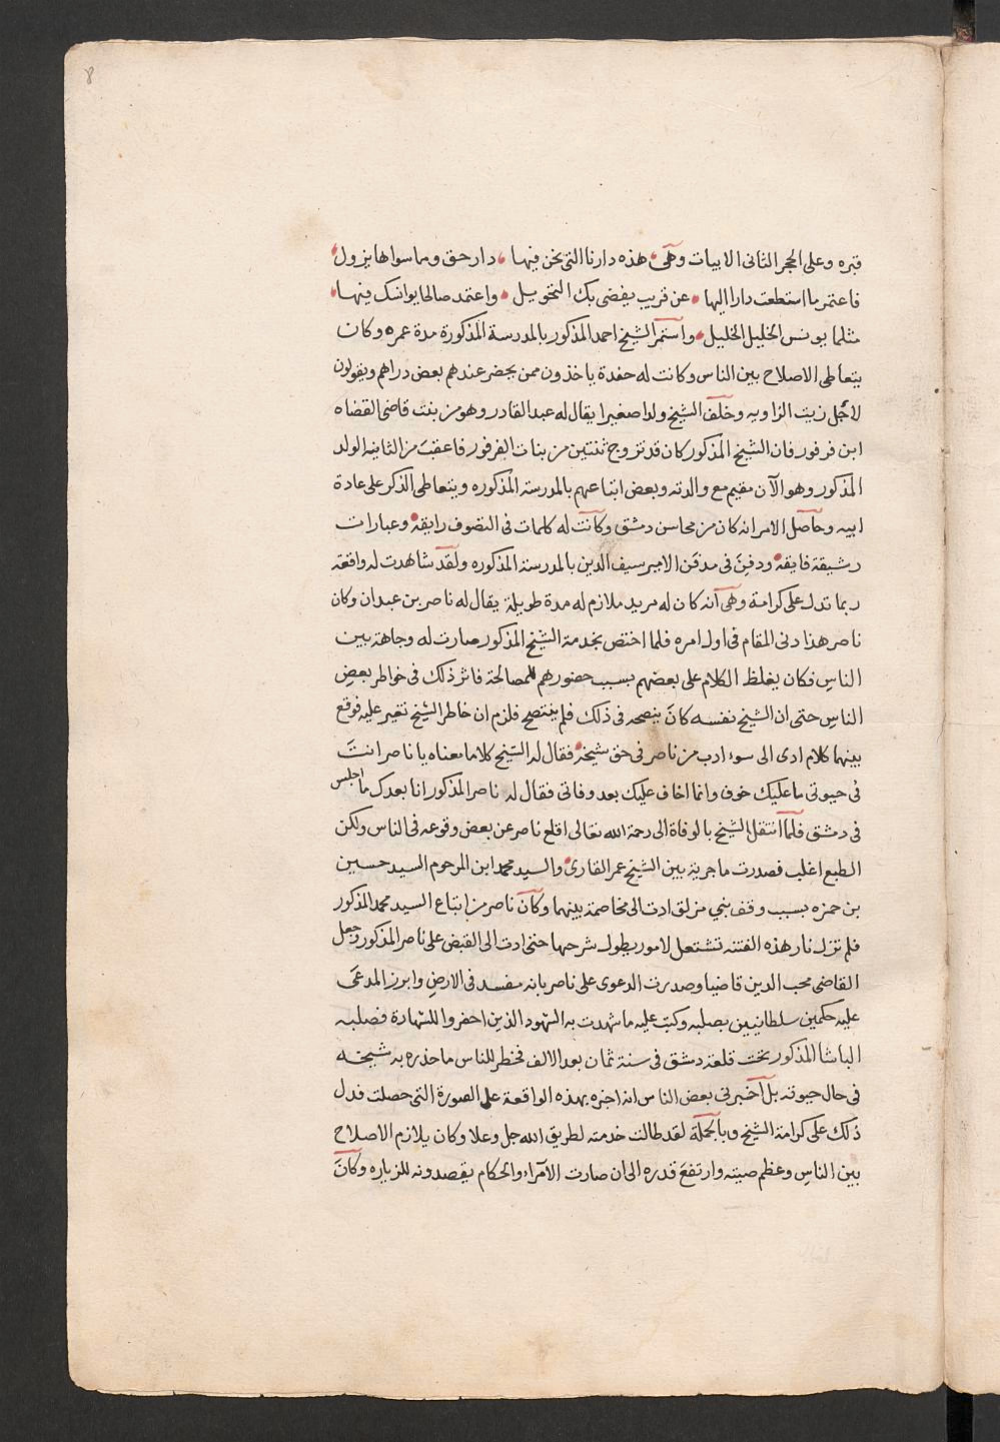 8
قبره وعلى الحجر الثانى الابيات وهى هذه دارنا التى نحن فيها • دار حق وما سواها يزول •
فاعتمر ما استطعت دارا اليها • عن قريب يفضى بك التحويل • واعتمد صالحا يوانسك فيها •
مثلما يونس الخليل الخليل • واستمر الشيخ احمد المذكور بالمدرسة المذكورة مدة عمره وكان
يتعاطى الاصلاح بين الناس وكانت له حفدة ياخذون ممن يحضر عندهم بعض دراهم ويقولون
لاجل زيت الزاويه وخلف الشيخ ولدا صغيرا يقال له عبد القادر وهو من بنت قاضى القضاه
ابن فرفور فان الشيخ المذكور كان قد تزوج ثنتين من بنات الفرفور فاعقبت من الثانيه الولد
المذكور وهو الآن مقيم مع والدته وبعض اتباعهم بالمدرسة المذكوره ويتعاطى الذكر على عادة
ابيه وحاصل الامر انه كان من محاسن دمشق وكانت له كلمات فى التصوف رايقة • وعبارات
رشيقة فايقة • ودفن فى مدفن الامير سيف الدين بالمدرسة المذكوره ولقد شاهدت له واقعة
ربما تدل على كرامة وهى انه كان له مريد ملازم له مدة طويلة يقال له ناصر بن عبدان وكان
ناصر هذا دنى المقام فى اول امره فلما اختص بخدمة الشيخ المذكور صارت له وجاهة بين
الناس فكان يغلظ الكلام على بعضهم بسبب حضورهم للمصالحة فاثر ذلك فى خواطر بعض
الناس حتى ان الشيخ نفسه كان ينصحه فى ذلك فلم ينتصح فلزم ان خاطر الشيخ تغير عليه فوقع
بينهما كلام ادى الى سوء ادب من ناصر فى حق شيخه • فقال له الشيخ كلاما معناه يا ناصر انت
فى حيوتى ما عليك خوف وانما اخاف عليك بعد وفاتى فقال له ناصر المذكور انا بعدك ما اجلس
فى دمشق فلما انتقل الشيخ بالوفاة الى رحمة الله تعالى اقلع ناصر عن بعض وقوعه فى الناس ولكن
الطبع اغلب فصدرت ماجرية بين الشيخ عمر القارى • والسيد محمد ابن المرحوم السيد حسين
بن حمزه بسبب وقف بنى مزلق ادت الى مخاصمة بينهما وكان ناصر من اتباع السيد محمد المذكور
فلم تزل نار هذه الفتنه تشتعل لامور يطول شرحها حتى ادت الى القبض على ناصر المذكور وجعل
القاضى محب الدين قاضيا وصدرت الدعوى على ناصر بانه مفسد فى الارض وابرز المدعى
عليه حكمين سلطانيين بصلبه وكتب عليه ما شهدت به الشهود الذين احضروا للشهادة فصلبه
الباشا المذكور تحت قلعة دمشق فى سنة ثمان بعد الالف فخطر للناس ما حذره به شيخه
فى حال حيوته بل اخبرنى بعض الناس انه اخبره بهذه الواقعة على الصورة التى حصلت فدل
ذلك على كرامة الشيخ وبالجملة لقد طالت خدمته لطريق الله جل وعلا وكان يلازم الاصلاح
بين الناس وعظم صيته وارتفع قدره الى ان صارت الأمراء والحكام يقصدونه للزياره وكان